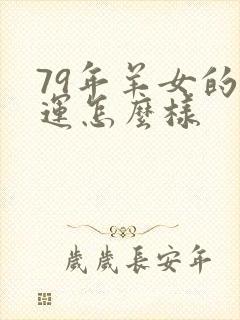 79年羊女的
運怎麼樣
歲歲長安年